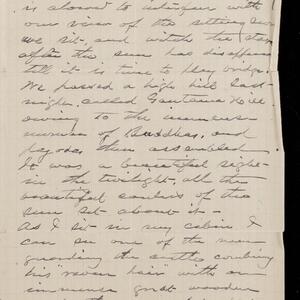 is allowed to interfere with
our view of the setting sun
we sit and watch the stars
after the sun has disappeared
till it is time to play bridge.
We passed a high hill last
night called Gautama Hill
owing to the immense
number of Buddhas, and
pagodas then assembled.
It was a beautiful sight
in the twilight, all the
beautiful colors of the
sun set about it -
As I sit in my cabin I
can see one of the men
guarding the cattle combing
his raven hair with an
immense great wooden